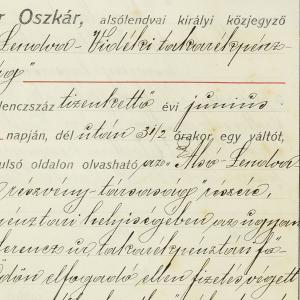 r Oszkár, alsólendvai királyi közjegyző
Lendva-Vidéki takarékpénz-
ság"
lenczszáz tizenkettő évi junius
napján, dél után 3 1/2 órakor, egy váltót,
ulsó oldalon olvasható, az "Alsó-Lendva-
részvény-társaság" részére,
pénztári helyiségében az ugyan
ferencz ur, takarékpénztári fő-
elfogadó ellen fizetés végett